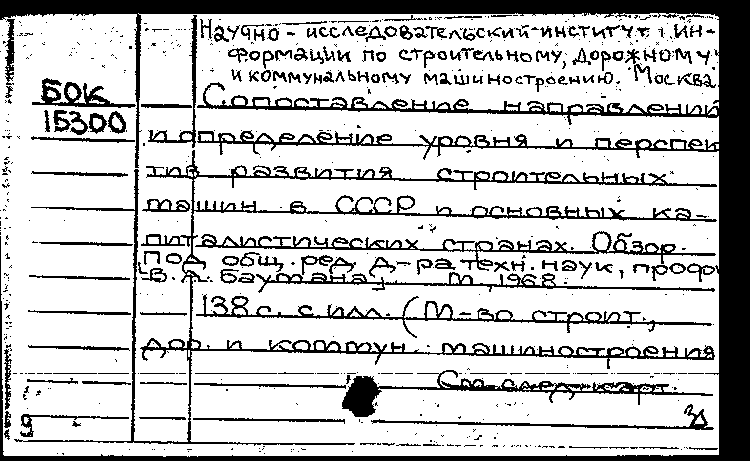 Научно-исследовательский институт ин-
формации по строительному, дорожному
и коммунальному машиностроению. Москва.
БОК
1Б300
Сопоставление направлений
и определение уровня и перспек
тив развития строительных
машин в СССР и основных ка-
питалистических странах. Обзор.
Под общ. ред. д-ра техн. наук, проф.
В. А. Баумана. М., 1968.
138 с. с илл. (М-во строит.,
дор. и коммун. машиностроения
См. след. карт.
9